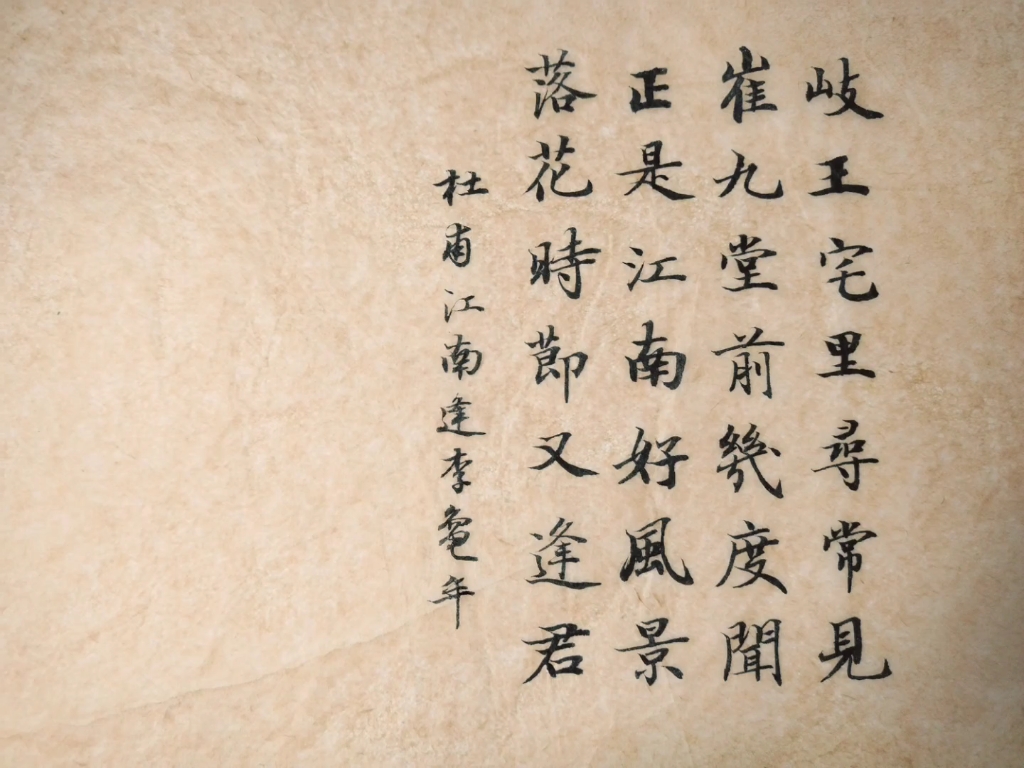 岐王宅里尋常見
崔九堂前幾度聞
正是江南好風景
落花時節又逢君
杜甫江南逢李龜年